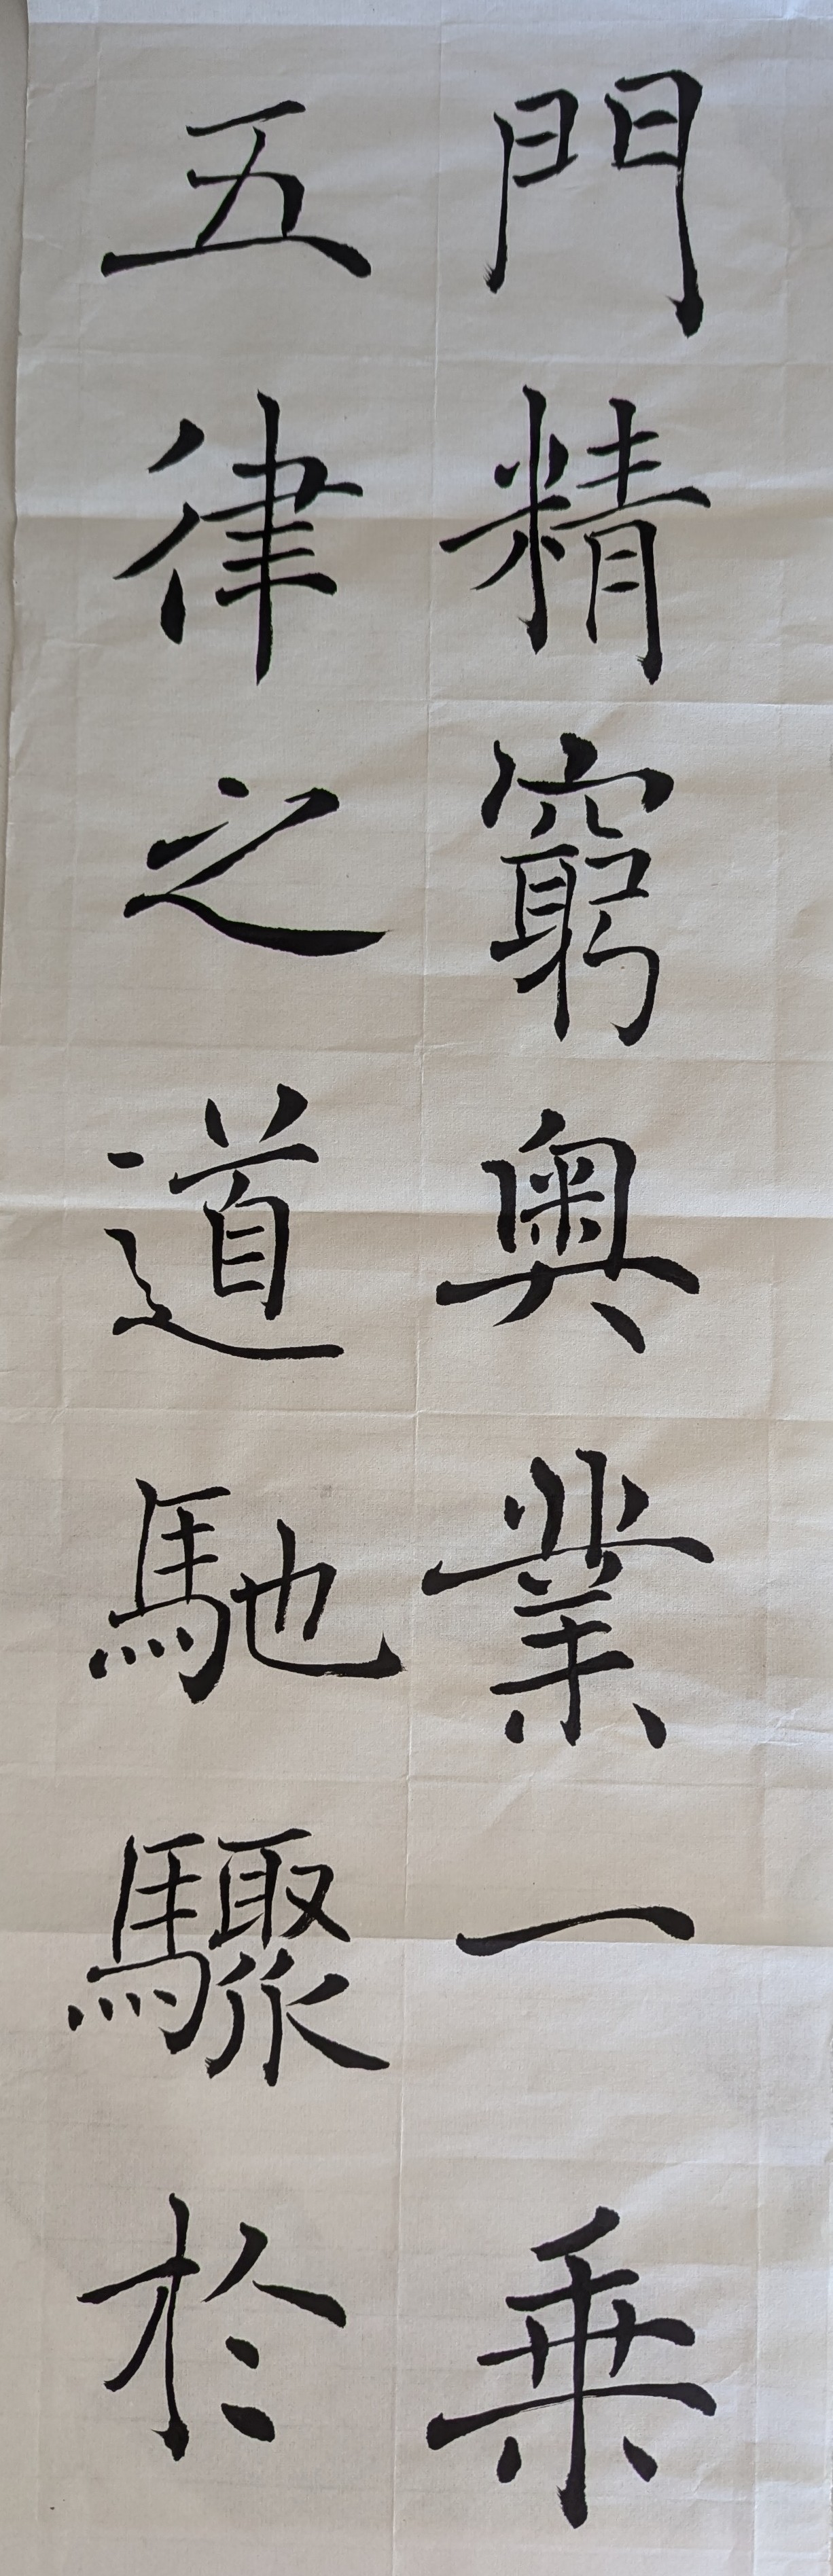 門精窮奥業一乗
五律之道馳驟於